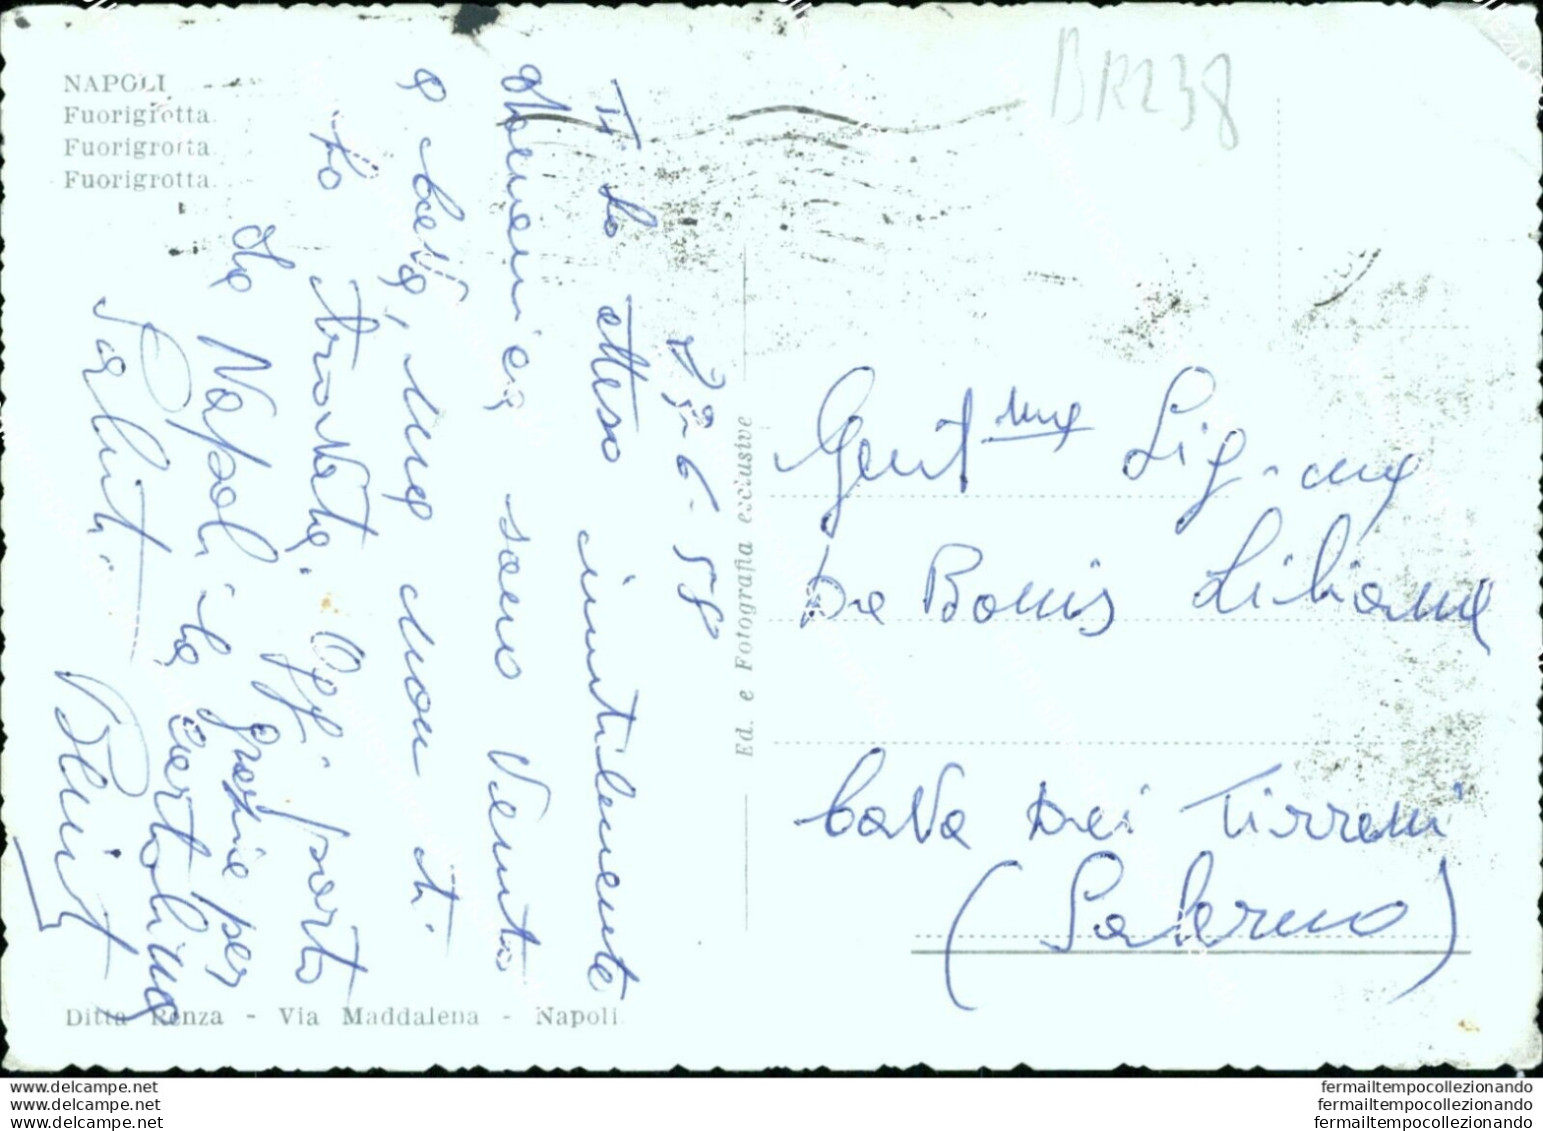 NAPOLI
Fuorigrotta
Fuorigrotta
Fuorigrotta
BR238
6-58
Ti ho atteso inutilmente
domenica, sono venuto
e bella, ma non ti
ho trovata. Oggi parto
da Napoli, grazie per
la cartolina
Saluti.
Ed. e Fotografia esclusive
Gent.ma Sig.na
De Bonis Liliana
Cava dei Tirreni
(Salerno)
Ditta Renza - Via Maddalena - Napoli
www.delcampe.net
www.delcampe.net
www.delcampe.net
fermailtempocollezionando
fermailtempocollezionando
fermailtempocollezionando